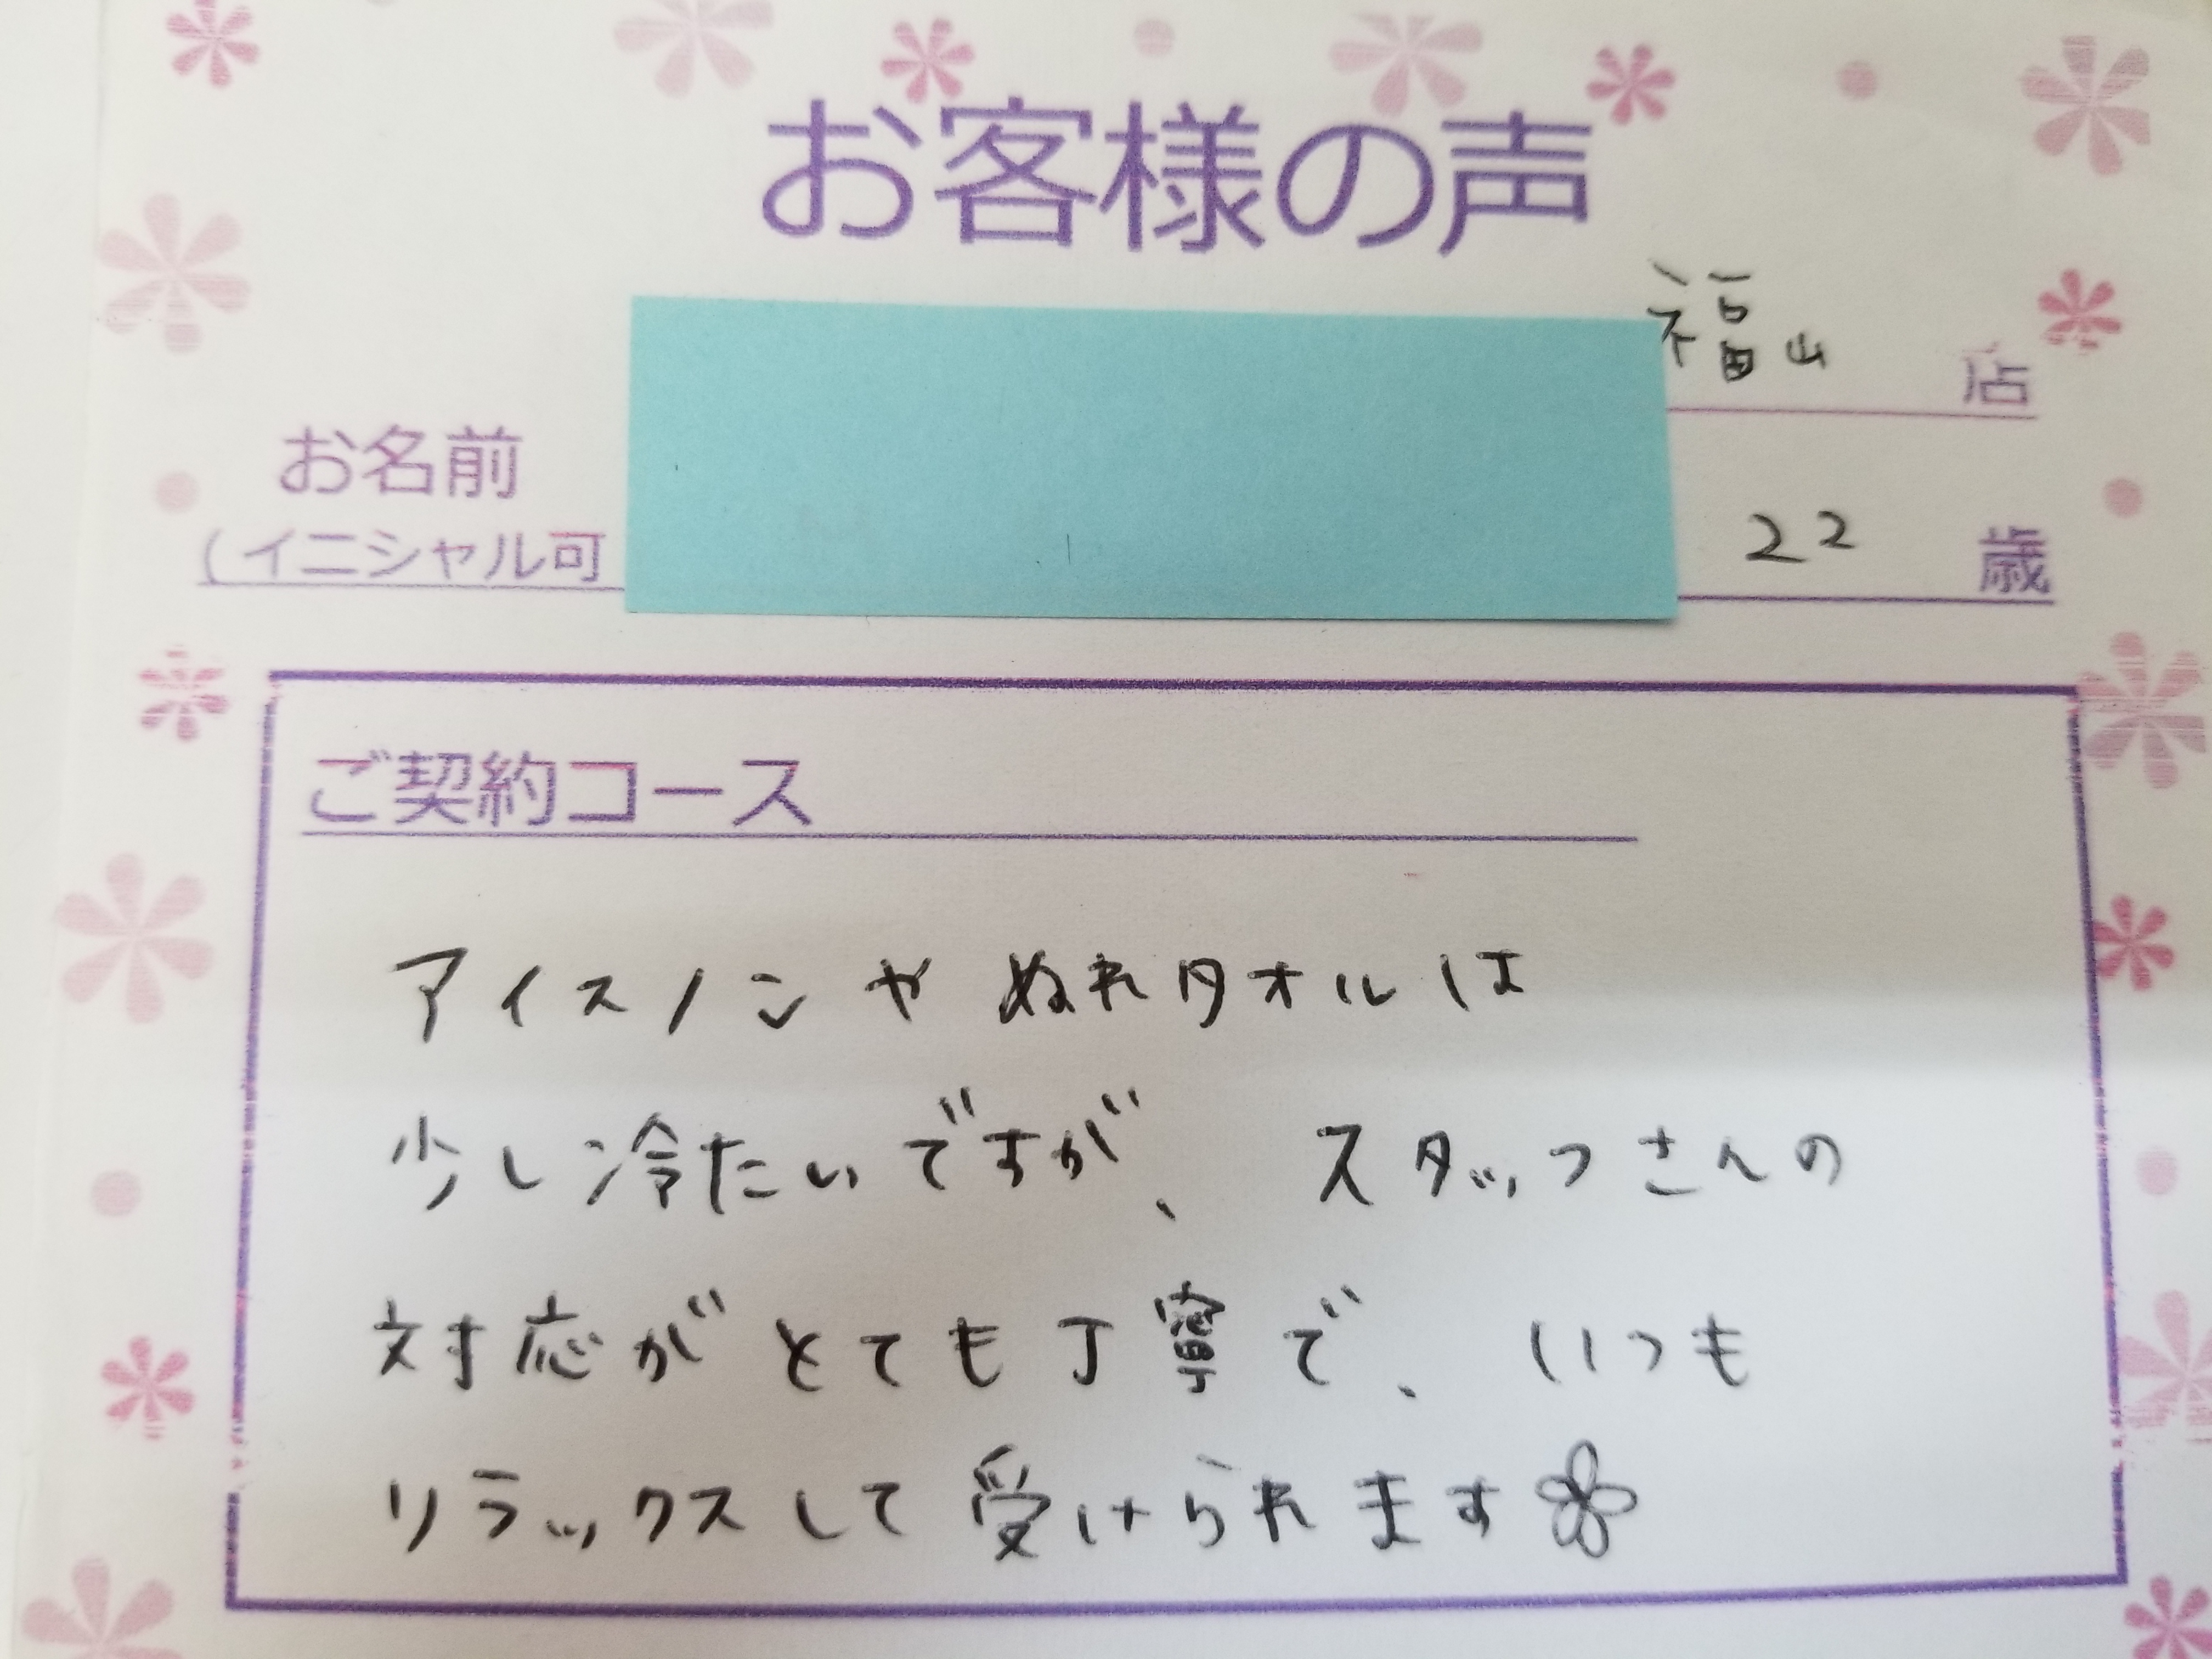 お客様の声
福山 店
お名前
(イニシャル可 22 歳
ご契約コース
アイスノンやぬれタオルは
少し冷たいですが、スタッフさんの
対応がとても丁寧で、いつも
リラックスして受けられます